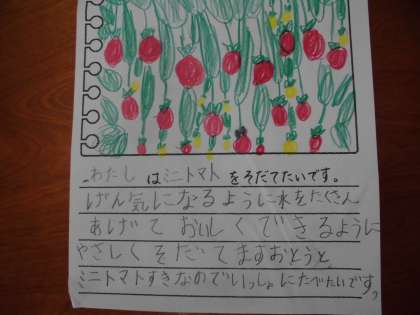 わたしはミニトマトをそだてたいです。
げん気になるように水をたくさん
あげておいしくできるように
やさしくそだてますおとうと
ミニトマトすきなのでいっしょにたべたいです。